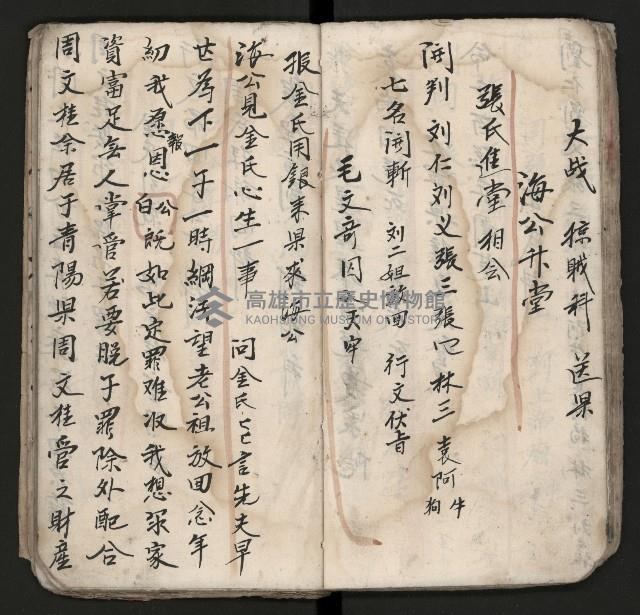 大战 掠戝科 送果
海公升堂
張氏進堂相会
開判 刘仁刘义張三張四林三 袁阿牛 狗
七名開斬 刘二姐放回 行文伏旨
毛文奇囚天牢
报金氏用銀来果求海公
海公見金氏心生一事 问金氏 言先夫早
世為下一子一時綱 望老公祖放回念年
幼我愿報恩 白公 既如此定罪难汲我想汝家
資富足無人掌管若要脱子罪除外配合
周文桂余居于青陽果周文桂管之財産
高雄市立歷史博物館
KAOHSIUNG MUSEUM OF HISTORY